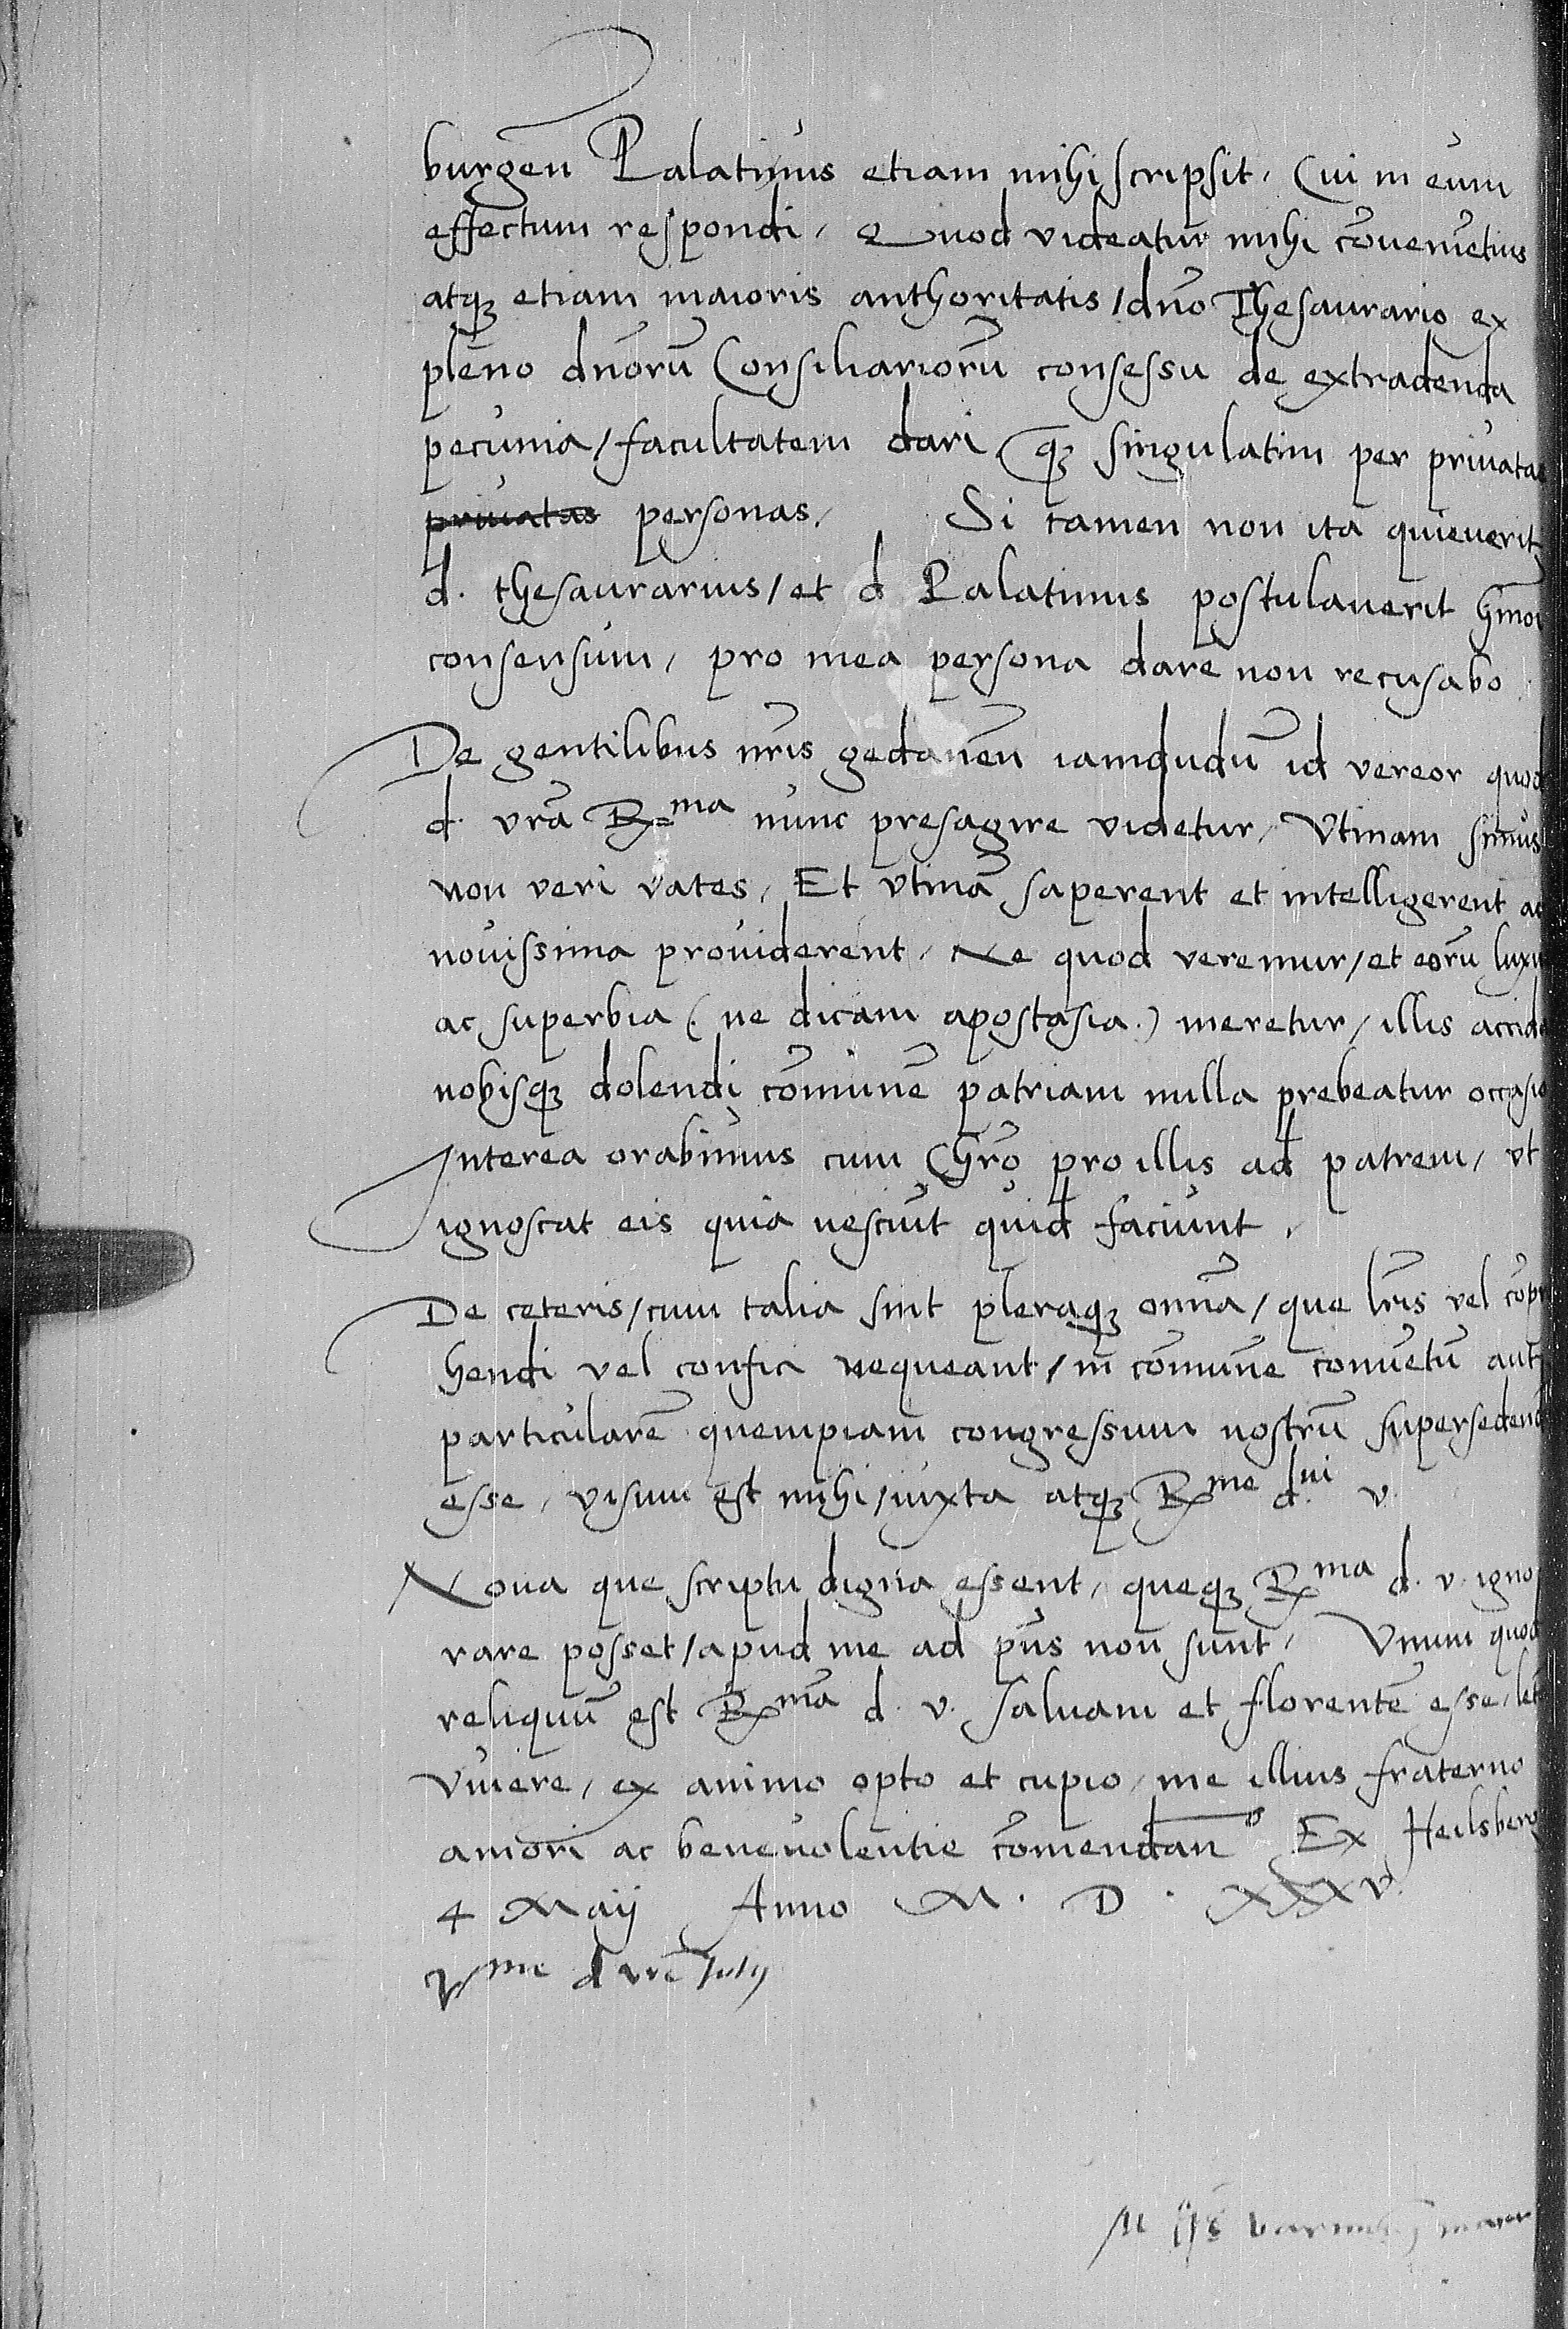 burgen̄ Palatinus etiam mihi scripsit, Cui in eum
effectum respondi, Quod videatur mihi cōvenie̅tius
atqꝫ etiam maioris authoritatis / dn̄o Thesaurario ex
pleno dn̄orū Consiliariorū consessu de extradenda
pecunia / facultatem dari, qꝫ singulatim per priuatas
priuatas personas, Si tamen non ita quieuerit
d. thesaurarius / et d Palatinus postulauerit hm̄oi
consensum, pro mea persona dare non recusabo.
De gentilibus nr̄is gedanen̄ iamdudū id vereor quod
d. vr̄a R=ma nunc presagire videtur, Vtinam simus
non veri vates, Et vtinā saperent et intelligerent ac
nouissima prouiderent, Ne quod veremur / et eorū luxu
ac superbia (ne dicam apostasia.) meretur / illis accid
nobisqꝫ dolendi cōmunē patriam nulla prebeatur occasio
Interea orabimus cum Chrō pro illis ad patrem, vt
ignoscat eis quia nesciūt quid faciunt.
De ceteris / cum talia sint pleraqꝫ omn̄ia / que lr̄is vel cōpr
hendi vel confici nequeant / in cōmune conuētū aut
particularē quempiam congressum nostrū supersedend
esse, visum est mihi / iuxta atqꝫ Rme d.ni v.
Noua que scriptu digna essent, queqꝫ Rma d. v. igno
rare posset / apud me ad pn̄s non sunt, Vnum quod
reliquū est Rmā d. v. saluam et florentē esse, let
viuere, ex animo opto et cupio, me illius fraterno
amori ac beneuolentie cōmendan̄ Ex Heilsberg
4 Maij Anno M. D. XXXV.
me d vr̄e
M